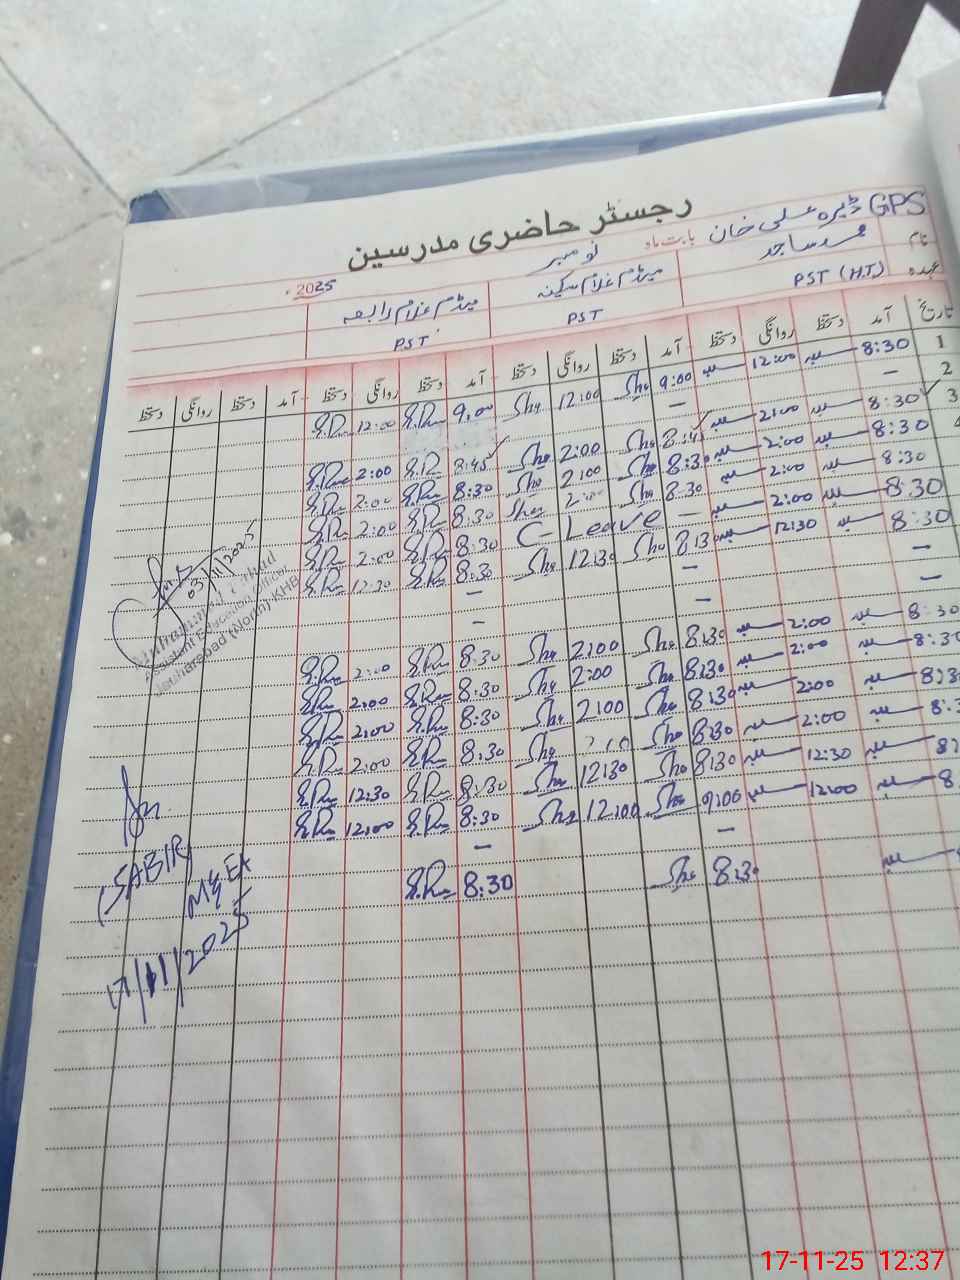 رجسٹر حاضری مدرسین
GPS ڈیرہ علی خان بابت ماہ نومبر 2025
نام محمد ساجد میڈم غلام سکینہ میڈم غلام رابعہ
عہدہ PST (H.T) PST PST
تاریخ آمد دستخط روانگی دستخط آمد دستخط روانگی دستخط آمد دستخط روانگی دستخط آمد دستخط روانگی دستخط
1 8:30 12:00 9:00 Sha 12:00 Sha 9.00 12:00
2 — —
3 8:30 2:00 8:45 Sha 2:00 Sha 8:45 2:00
4 8:30 2:00 8:30 Sha 2:00 Sha 8:30 2:00
8:30 2:00 8:30 Sha 2:00 Sha 8:30 2:00
8:30 2:00 — C-Leave 8:30 2:00
8:30 12:30 8:30 Sha 12:30 Sha 8:30 12:30
— — —
— — —
8:30 2:00 8:30 Sha 2:00 Sha 8:30 2:00
8:30 2:00 8:30 Sha 2:00 Sha 8:30 2:00
2:00 8:30 Sha 2:00 Sha 8:30 2:00
2:00 8:30 Sha Sha 8:30 2:00
12:30 8:30 Sha 12:30 Sha 8:30 12:30
12:00 9:00 Sha 12:00 Sha 8:30 12:00
— —
8:30 Sha 8:30
03/11/2025
Muhammad Irshad
Assistant Education Officer
Jauharabad (North) KHB
(SABIR)
M&EA
17/11/2025
17-11-25 12:37